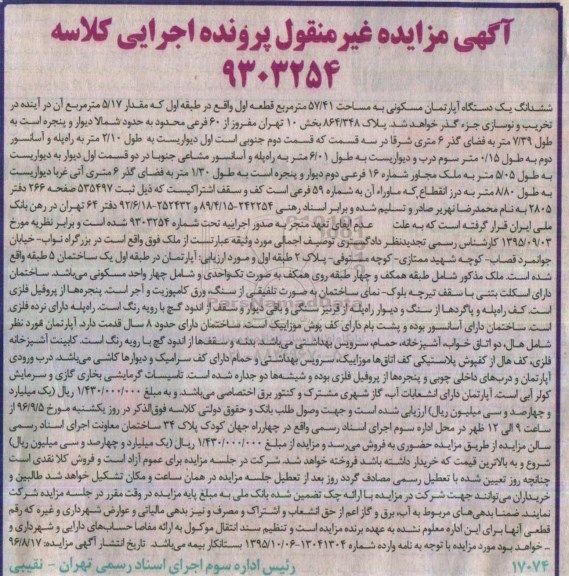 آگهی مزایده غیر منقول پرونده اجرایی کلاسه
۹۳۰۳۲۵۴
ششدانگ یک دستگاه آپارتمان مسکونی به مساحت ۵۷/۴۱ مترمربع قطعه اول واقع در طبقه اول که مقدار ۵/۱۷ مترمربع آن در آینده در
تخریب و نوسازی جزء گذر خواهد شد. پلاک ۸۶۴/۳۴۸ بخش ۱۰ تهران مفروز از ۶۰ فرعی محدود به حدود شمالا دیوار و پنجره است به
طول ۷/۳۹ متر به فضای گذر ۶ متری شرقا در سه قسمت که قسمت دوم جنوبی است اول دیواریست به طول ۲/۱۰ متر به راه‌پله و آسانسور
دوم به طول ۰/۱۵ متر سوم درب و دیواریست به طول ۶/۰۱ متر به راه‌پله و آسانسور مشاعی جنوبا در دو قسمت اول دیوار به دیواریست
به طول ۵/۰۵ متر به ملک مجاور شماره ۱۶ فرعی دوم دیوار و پنجره است به طول ۱/۳۰ متر به فضای گذر ۶ متری آتی غربا دیواریست
به طول ۸/۸۰ متر به درز انقطاع که ماوراء آن به شماره ۵۹ فرعی است کف و سقف اشتراکیست که ذیل ثبت ۵۳۵۴۹۷ صفحه ۲۶۶ دفتر
۲۸۰۵ به نام محمدرضا نهریر صادر و تسلیم شده و برابر اسناد رهنی ۲۴۲۲۵۴-۸۹/۴/۱۵ و ۲۵۲۴۳۲-۹۲/۶/۱۸ دفتر ۶۴ تهران در رهن بانک
ملی ایران قرار گرفته است که به علت عدم ایفای تعهد منجر به صدور اجراییه تحت شماره ۹۳۰۳۲۵۴ شده است و برابر نظریه مورخ
۱۳۹۵/۰۹/۰۳ کارشناس رسمی تجدیدنظر دادگستری توصیف اجمالی مورد وثیقه عبارتست از ملک فوق واقع است در بزرگراه نواب- خیابان
جوانمرد قصاب- کوچه شهید ممتازی- کوچه مستوفی- پلاک ۲ طبقه اول و مورد ارزیابی: آپارتمان در طبقه اول یک ساختمان ۵ طبقه واقع
شده است. ملک مذکور شامل طبقه همکف و چهار طبقه روی همکف به صورت تک‌واحدی و شامل چهار واحد مسکونی می‌باشد. ساختمان
دارای اسکلت بتنی با سقف تیرچه بلوک- نمای ساختمان به صورت تلفیقی از سنگ، ورق کامپوزیت و آجر است. پنجره‌ها از پروفیل فلزی
است. کف راه‌پله و پاگردها از سنگ و دیوار راه‌پله از قرنیز سنگی و باقی دیوار و سقف از اندود گچ با رویه رنگ است. راه‌پله دارای نرده فلزی
است. ساختمان دارای آسانسور بوده و پشت بام دارای کف پوش موزاییک است. ساختمان دارای حدود ۸ سال قدمت دارد. آپارتمان مورد نظر
شامل هال، دو اتاق خواب، آشپزخانه، حمام، سرویس بهداشتی می‌باشد. بدنه و سقف‌ها از اندود گچ با رویه رنگ است. کابینت آشپزخانه
فلزی، کف هال از کفپوش پلاستیکی کف اتاق‌ها موزاییک، سرویس بهداشتی و حمام دارای کف سرامیک و دیوارها کاشی می‌باشد. درب ورودی
آپارتمان و درب‌های داخلی چوبی و پنجره‌ها از پروفیل فلزی بوده و شیشه‌ها دو جداره شده است. تاسیسات گرمایشی بخاری گازی و سرمایش
کولر آبی است. آپارتمان دارای انشعابات آب، گاز شهری مشترک و کنتور برق اختصاصی می‌باشد. و به مبلغ ۱/۴۳۰/۰۰۰/۰۰۰ ریال (یک میلیارد
و چهارصد و سی میلیون ریال) ارزیابی شده است و جهت وصول طلب بانک و حقوق دولتی کلاسه فوق‌الذکر در روز یکشنبه مورخ ۹۶/۹/۵ از
ساعت ۹ الی ۱۲ ظهر در محل اداره سوم اجرای اسناد رسمی واقع در چهارراه جهان کودک پلاک ۳۴ ساختمان معاونت اجرای اسناد رسمی
سالن مزایده از طریق مزایده حضوری به فروش می‌رسد و مزایده از مبلغ ۱/۴۳۰/۰۰۰/۰۰۰ ریال (یک میلیارد و چهارصد و سی میلیون ریال)
شروع و به بالاترین قیمت که خریدار داشته باشد فروخته خواهد شد. شرکت در جلسه مزایده برای عموم آزاد است و فروش کلا نقدی است
چنانچه روز تعیین شده با تعطیل رسمی مصادف گردد روز بعد از تعطیل جلسه مزایده در همان ساعت و مکان تشکیل خواهد شد طالبین و
خریداران می‌توانند جهت شرکت در مزایده با ارائه چک تضمین شده بانک ملی به مبلغ پایه مزایده در وقت مقرر در جلسه مزایده شرکت
نمایند. ضمنا بدهی‌های مربوط به آب، برق و گاز اعم از حق انشعاب و اشتراک و مصرف و نیز بدهی مالیاتی و عوارض شهرداری و غیره که رقم
قطعی آنها برای این اداره معلوم نشده به عهده برنده مزایده است و تنظیم سند انتقال موکول به ارائه مفاصا حساب‌های دارایی و شهرداری و
... خواهد بود مورد مزایده با توجه به نامه وارده شماره ۱۳۰۴۱۳۰۴-۱۳۹۵/۱۰/۰۶ بستانکار بیمه می‌باشد. تاریخ انتشار آگهی مزایده: ۹۶/۸/۱۷
۱۷۰۷۴ رئیس اداره سوم اجرای اسناد رسمی تهران - نقیبی